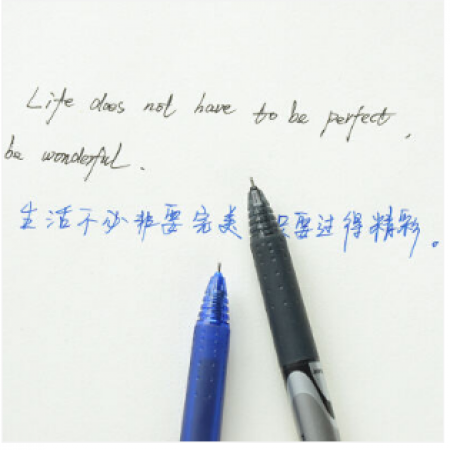 Life does not have to be perfect,
be wonderful.
生活不必非要完美 要过得精彩。